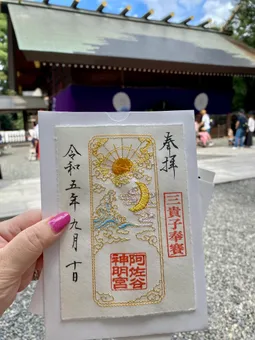 奉拝
三貴子奉賽
阿佐谷
神明宮
令和五年九月十日